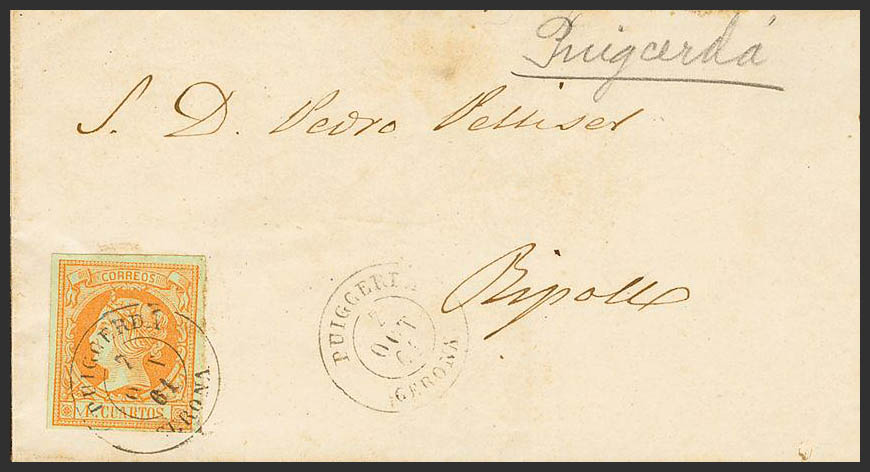 Puigcerdá
S. D. Pedro Pelliser
Ripoll
CORREOS
CUARTOS
PUIGCERDA
7
61
GERONA
PUIGCERDA
7
OCT
61
GERONA